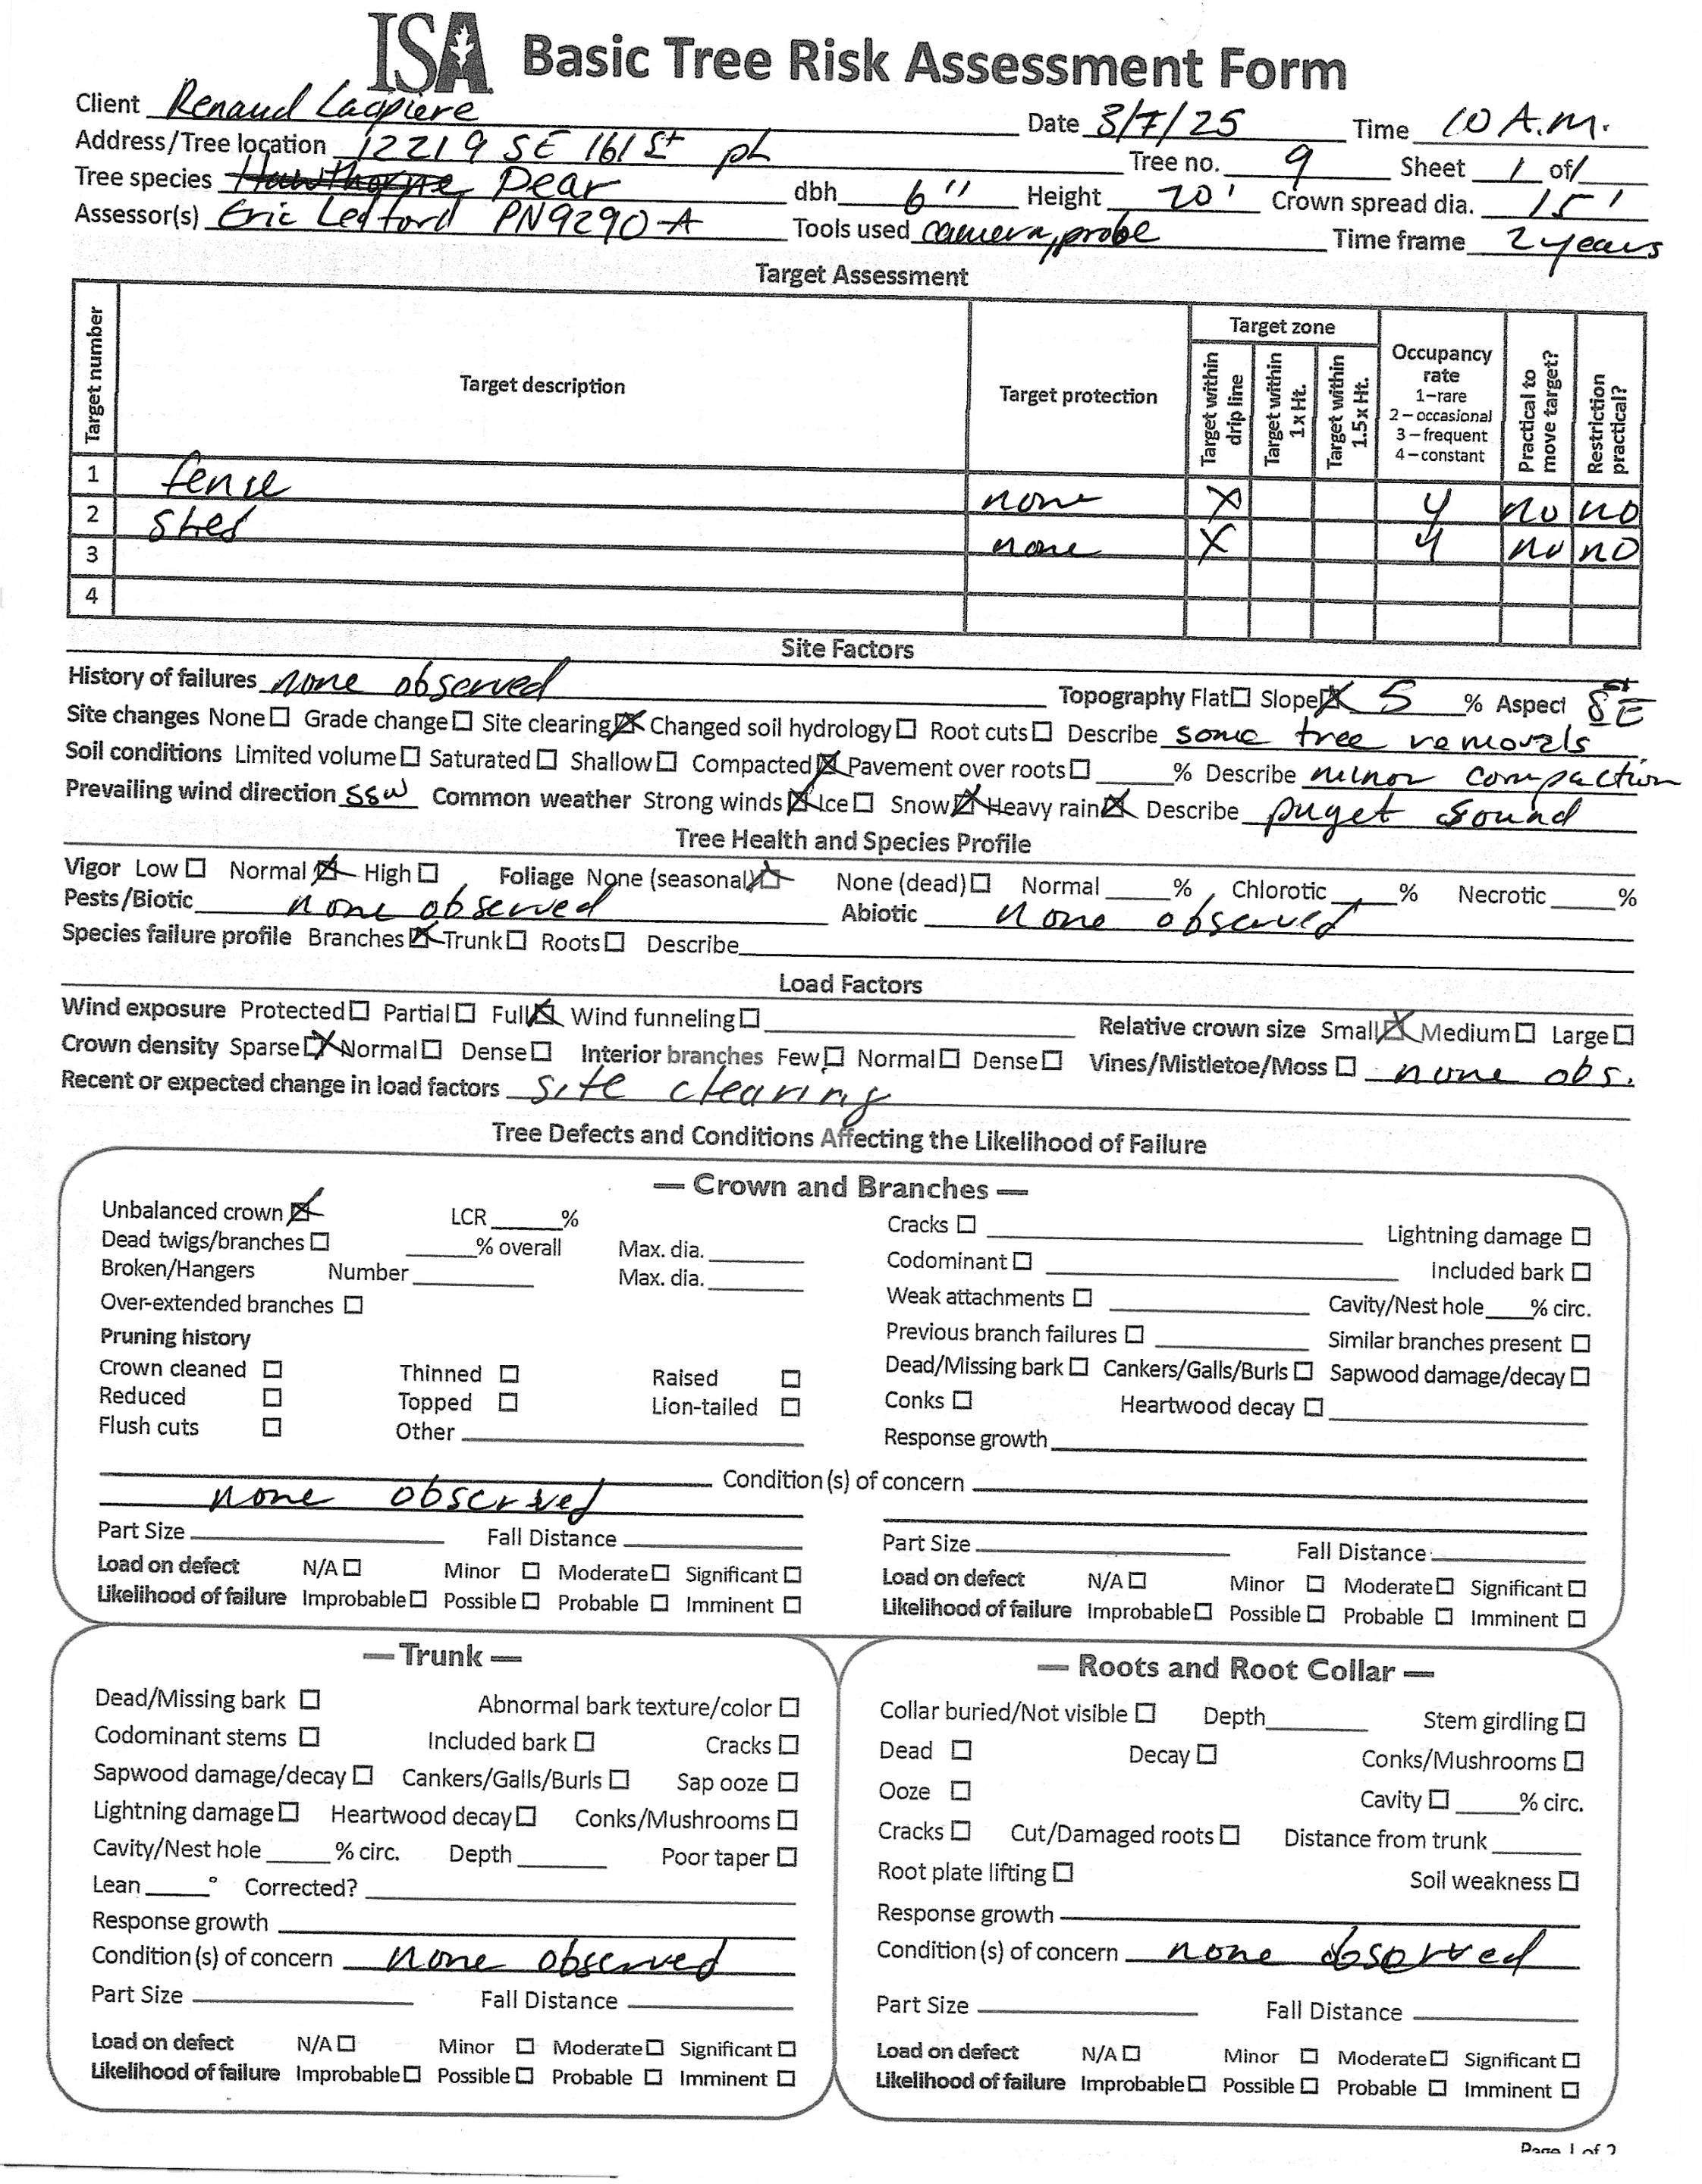 ISA Basic Tree Risk Assessment Form
Client Renaud Lacpiere Date 3/7/25 Time 10 A.M.
Address/Tree location 12219 SE 161 St pl Tree no. 9 Sheet 1 of 1
Tree species Hawthorne Pear dbh 6" Height 20' Crown spread dia. 15'
Assessor(s) Eric Ledford PN9290-A Tools used camera, probe Time frame 2 years
Target Assessment
Target number Target description Target protection Target zone Target within drip line Target within 1 x Ht. Target within 1.5 x Ht. Occupancy rate 1–rare 2–occasional 3–frequent 4–constant Practical to move target? Restriction practical?
1 fense none X 4 no no
2 shed none X 4 no no
3
4
Site Factors
History of failures none observed Topography Flat☐ Slope☒ 5 % Aspect SE
Site changes None☐ Grade change☐ Site clearing☒ Changed soil hydrology☐ Root cuts☐ Describe some tree removals
Soil conditions Limited volume☐ Saturated☐ Shallow☐ Compacted☒ Pavement over roots☐ % Describe minor compaction
Prevailing wind direction SSW Common weather Strong winds☒ Ice☐ Snow☒ Heavy rain☒ Describe puget sound
Tree Health and Species Profile
Vigor Low☐ Normal☒ High☐ Foliage None (seasonal)☒ None (dead)☐ Normal % Chlorotic % Necrotic %
Pests/Biotic none observed Abiotic none observed
Species failure profile Branches☒ Trunk☐ Roots☐ Describe
Load Factors
Wind exposure Protected☐ Partial☐ Full☒ Wind funneling☐ Relative crown size Small☒ Medium☐ Large☐
Crown density Sparse☒ Normal☐ Dense☐ Interior branches Few☐ Normal☐ Dense☐ Vines/Mistletoe/Moss☐ none obs.
Recent or expected change in load factors site clearing
Tree Defects and Conditions Affecting the Likelihood of Failure
— Crown and Branches —
Unbalanced crown☒ LCR %
Dead twigs/branches☐ % overall Max. dia.
Broken/Hangers Number Max. dia.
Over-extended branches☐
Pruning history
Crown cleaned☐ Thinned☐ Raised☐
Reduced☐ Topped☐ Lion-tailed☐
Flush cuts☐ Other
Cracks☐ Lightning damage☐
Codominant☐ Included bark☐
Weak attachments☐ Cavity/Nest hole % circ.
Previous branch failures☐ Similar branches present☐
Dead/Missing bark☐ Cankers/Galls/Burls☐ Sapwood damage/decay☐
Conks☐ Heartwood decay☐
Response growth
Condition (s) of concern
none observed
Part Size Fall Distance
Load on defect N/A☐ Minor☐ Moderate☐ Significant☐
Likelihood of failure Improbable☐ Possible☐ Probable☐ Imminent☐
Part Size Fall Distance
Load on defect N/A☐ Minor☐ Moderate☐ Significant☐
Likelihood of failure Improbable☐ Possible☐ Probable☐ Imminent☐
— Trunk —
Dead/Missing bark☐ Abnormal bark texture/color☐
Codominant stems☐ Included bark☐ Cracks☐
Sapwood damage/decay☐ Cankers/Galls/Burls☐ Sap ooze☐
Lightning damage☐ Heartwood decay☐ Conks/Mushrooms☐
Cavity/Nest hole % circ. Depth Poor taper☐
Lean ° Corrected?
Response growth
Condition (s) of concern none observed
Part Size Fall Distance
Load on defect N/A☐ Minor☐ Moderate☐ Significant☐
Likelihood of failure Improbable☐ Possible☐ Probable☐ Imminent☐
— Roots and Root Collar —
Collar buried/Not visible☐ Depth Stem girdling☐
Dead☐ Decay☐ Conks/Mushrooms☐
Ooze☐ Cavity☐ % circ.
Cracks☐ Cut/Damaged roots☐ Distance from trunk
Root plate lifting☐ Soil weakness☐
Response growth
Condition (s) of concern none observed
Part Size Fall Distance
Load on defect N/A☐ Minor☐ Moderate☐ Significant☐
Likelihood of failure Improbable☐ Possible☐ Probable☐ Imminent☐
Page 1 of 2